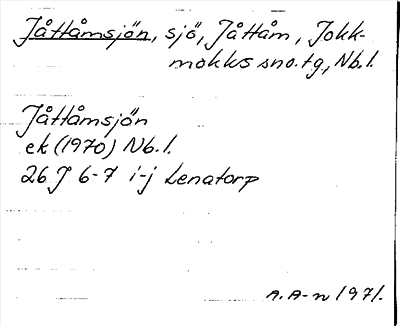 Jåttåmsjön, sjö, Jåttåm, Jokk-
mokks sno.tg, Nb.l.
Jåttåmsjön
ek (1970) Nb.l.
26 J 6-7 i-j Lenatorp
A.A-n 1971.